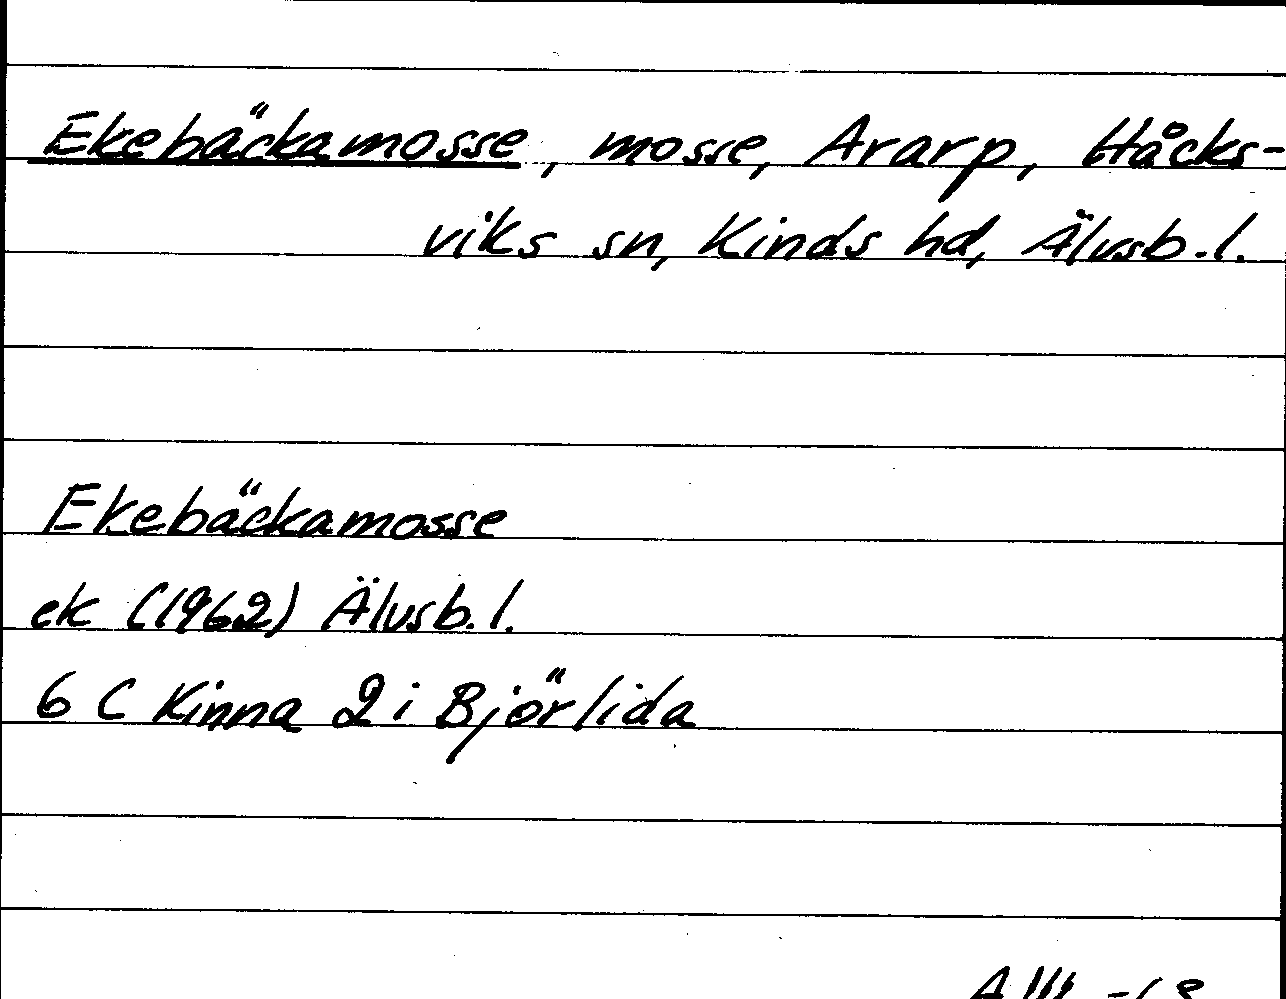 Ekebäckamosse, mosse, Ararp, Håcks-
viks sn, Kinds hd, Älvsb.l.
Ekebäckamosse
ek (1962) Älvsb.l.
6 C Kinna 2 i Björlida